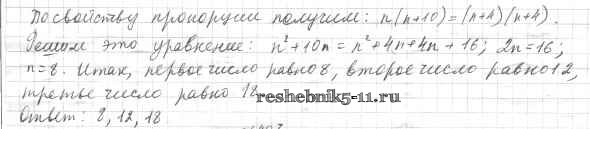 По свойству пропорции получим: n(n+10)=(n+4)(n+4).
Решим это уравнение: n²+10n=n²+4n+4n+16; 2n=16;
n=8. Итак, первое число равно 8, второе число равно 12,
третье число равно 18.
reshebnik5-11.ru
Ответ: 8, 12, 18